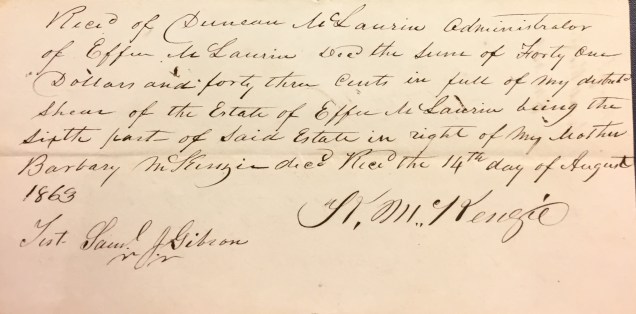 Recd of Duncan McLaurin Administrator
of Effie McLaurin Decd the sum of Forty One
Dollars and forty three Cents in full of my distrib
Shear of the Estate of Effie McLaurin being the
Sixth part of Said Estate in right of my Mother
Barbary McKenzie decd Recd the 14th day of August
1863
K. McKenzie
Test Saml J. Gibson